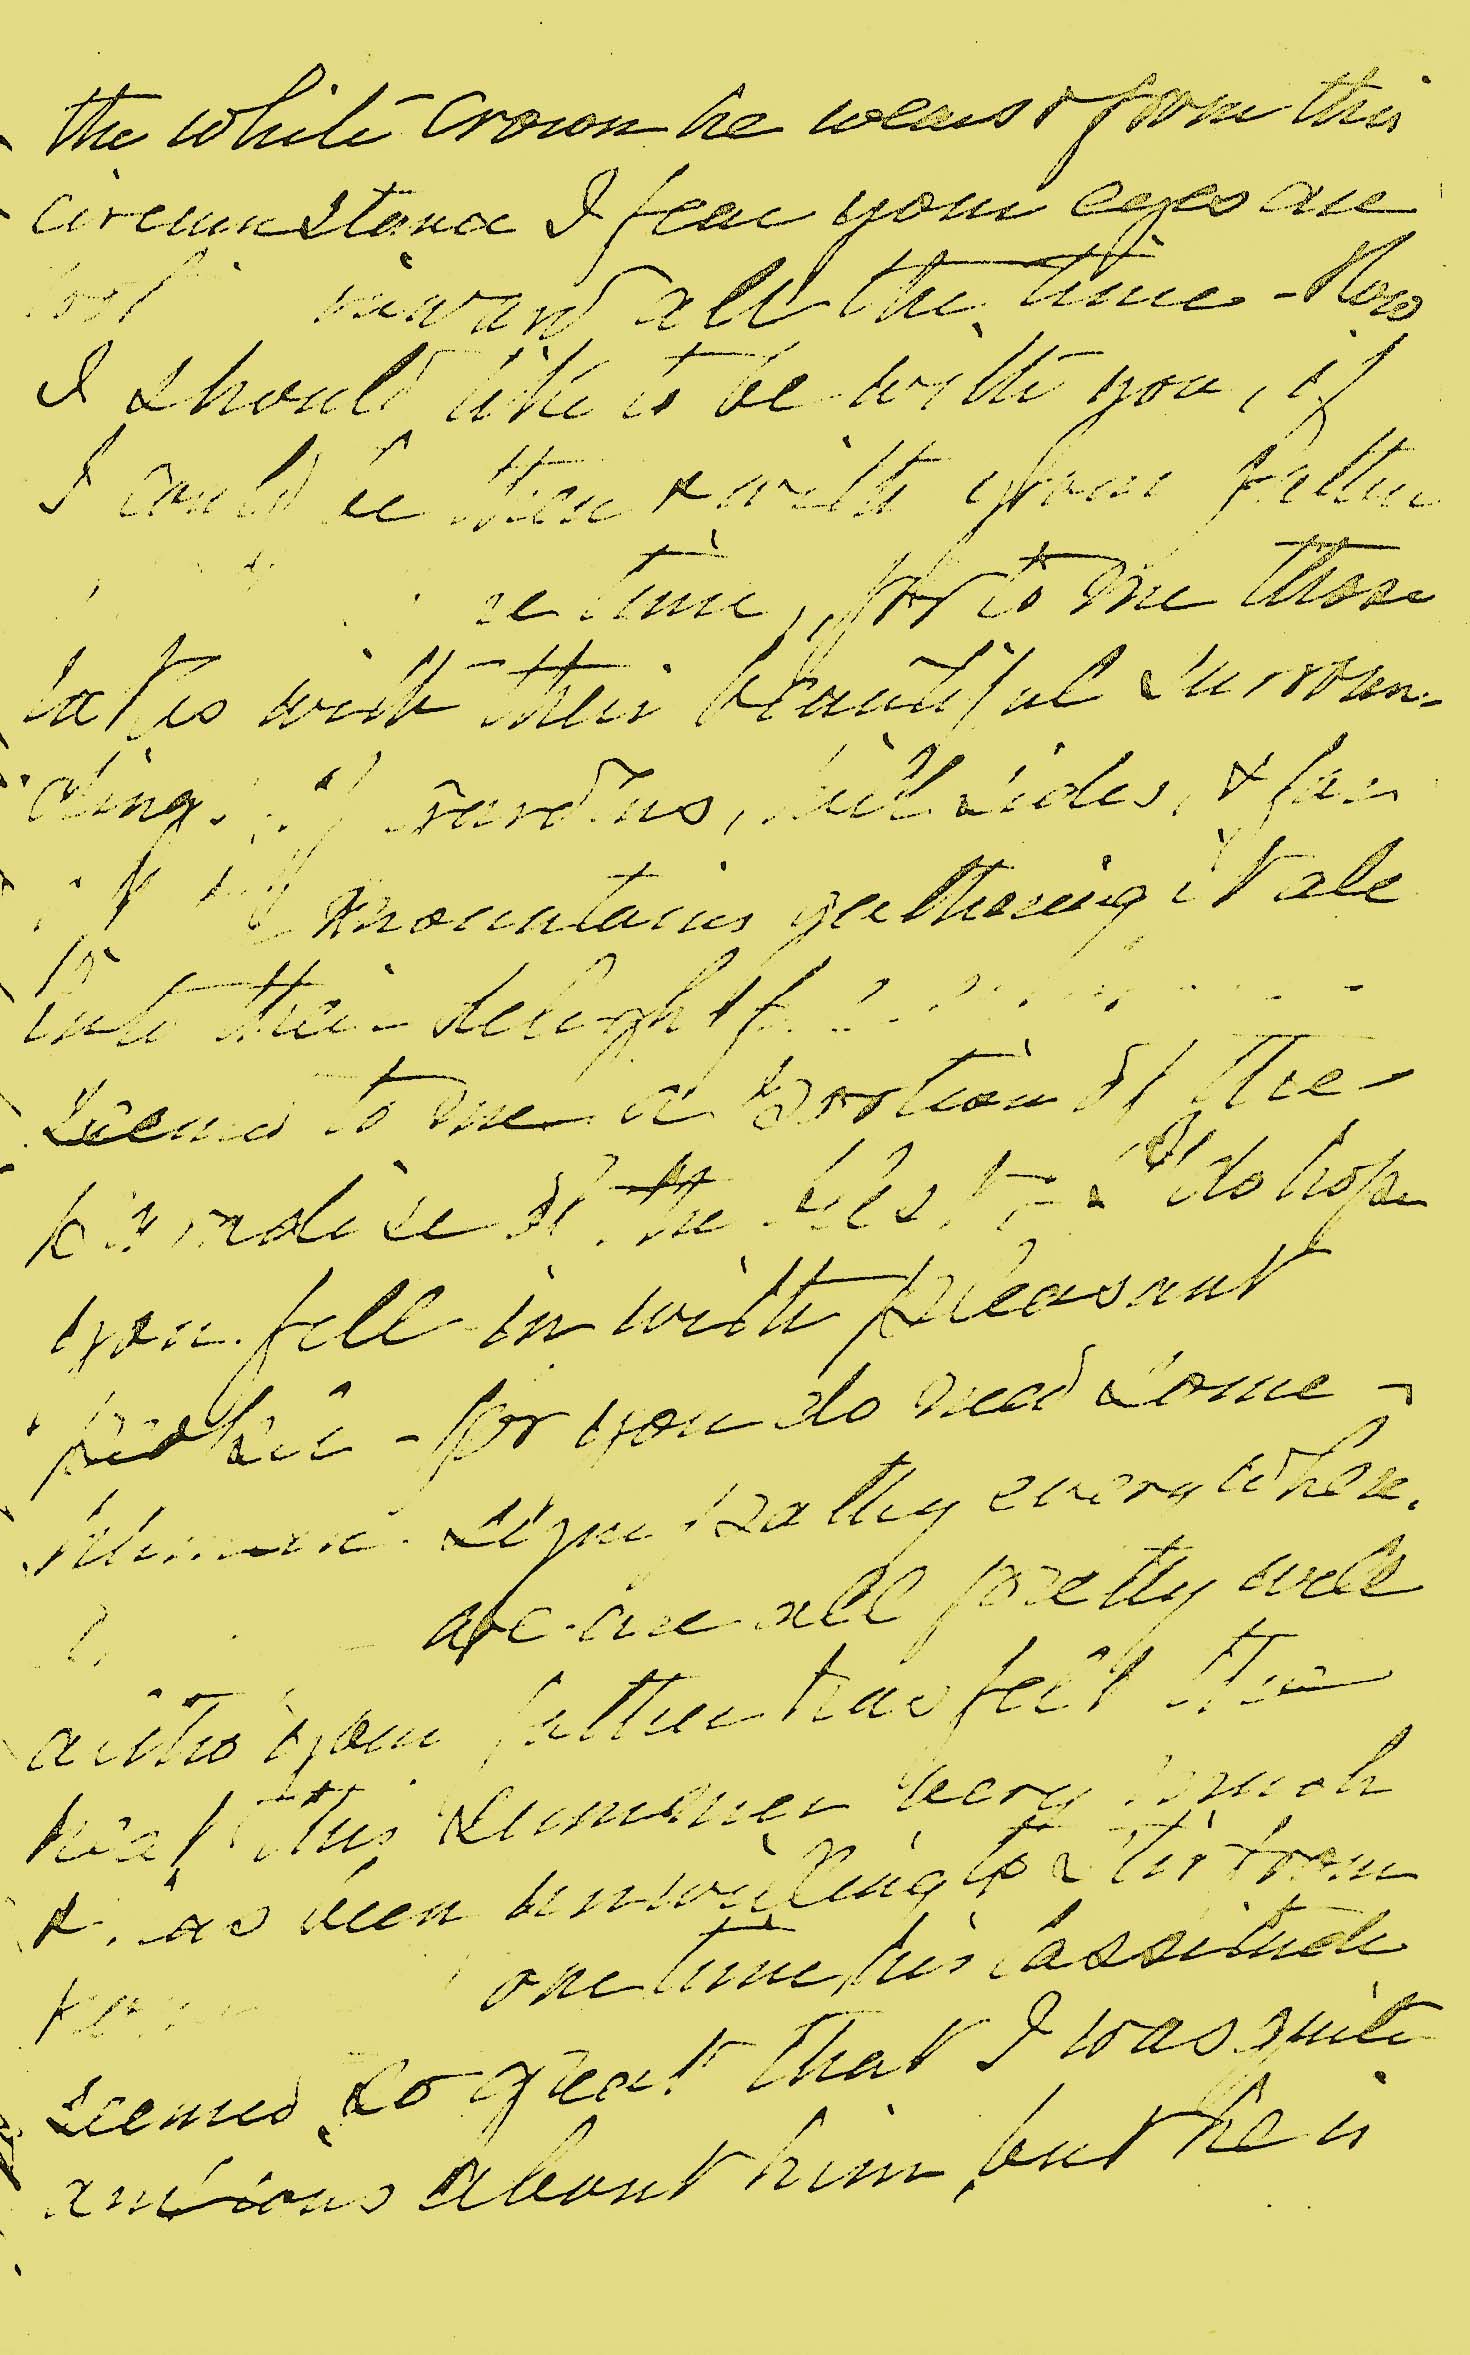 the white crown he wears & from this
circumstance I fear your eyes are
inward all the time - How
I should like to be with you, if
I could be there & with your father
time, for to me those
lakes with their beautiful surroun-
dings of gardens, hill sides, & far
mountains gathering it all
into their delightful
seems to me a portion of the
paradise of the blest - I do hope
you fell in with pleasant
people - for you do need some
human sympathy everywhere.
we are all pretty well
altho' your father has felt the
heat this summer very much
& has been unwilling to stir from
one time his lassitude
seemed so great that I was quite
anxious about him, but he is